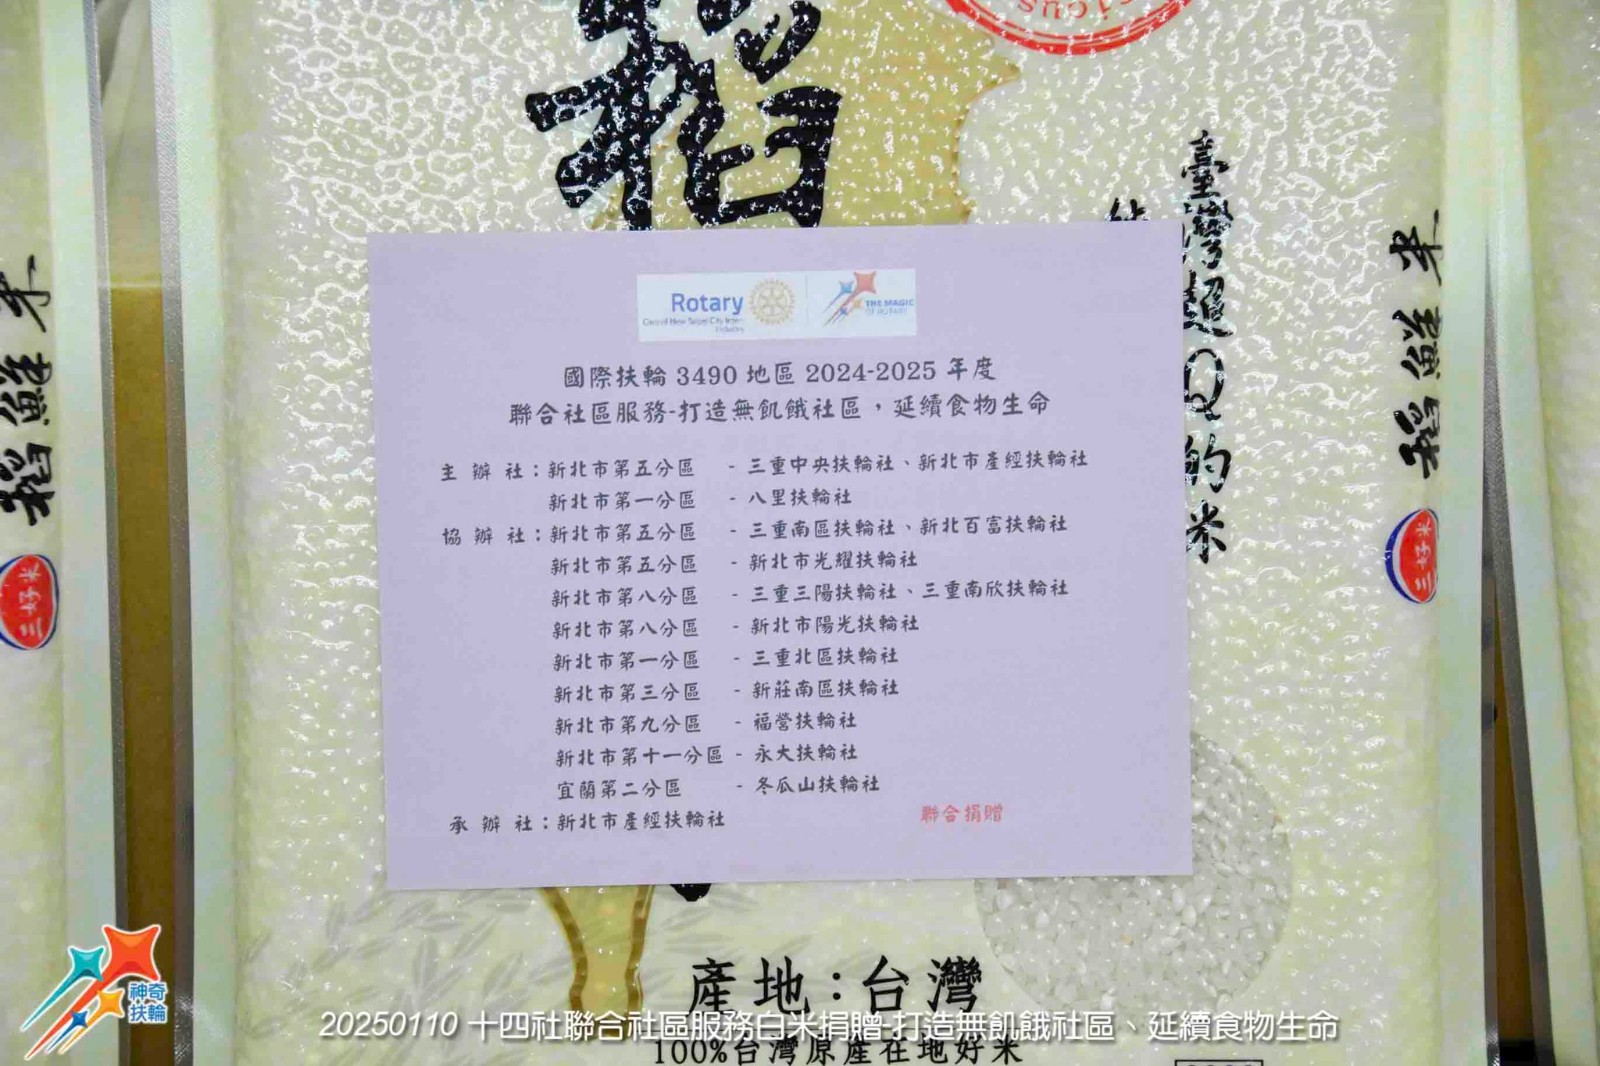 稻
臺灣超Q的米
Rotary
THE MAGIC
OF ROTARY
國際扶輪 3490 地區 2024-2025 年度
聯合社區服務-打造無飢餓社區，延續食物生命
主 辦 社：新北市第五分區 - 三重中央扶輪社、新北市產經扶輪社
新北市第一分區 - 八里扶輪社
協 辦 社：新北市第五分區 - 三重南區扶輪社、新北百富扶輪社
新北市第五分區 - 新北市光耀扶輪社
新北市第八分區 - 三重三陽扶輪社、三重南欣扶輪社
新北市第八分區 - 新北市陽光扶輪社
新北市第一分區 - 三重北區扶輪社
新北市第三分區 - 新莊南區扶輪社
新北市第九分區 - 福營扶輪社
新北市第十一分區 - 永大扶輪社
宜蘭第二分區 - 冬瓜山扶輪社
承 辦 社：新北市產經扶輪社 聯合捐贈
稻鮮米
三好米
稻鮮米
三好米
產地：台灣
100%台灣原產在地好米
神奇
扶輪
20250110 十四社聯合社區服務白米捐贈-打造無飢餓社區、延續食物生命